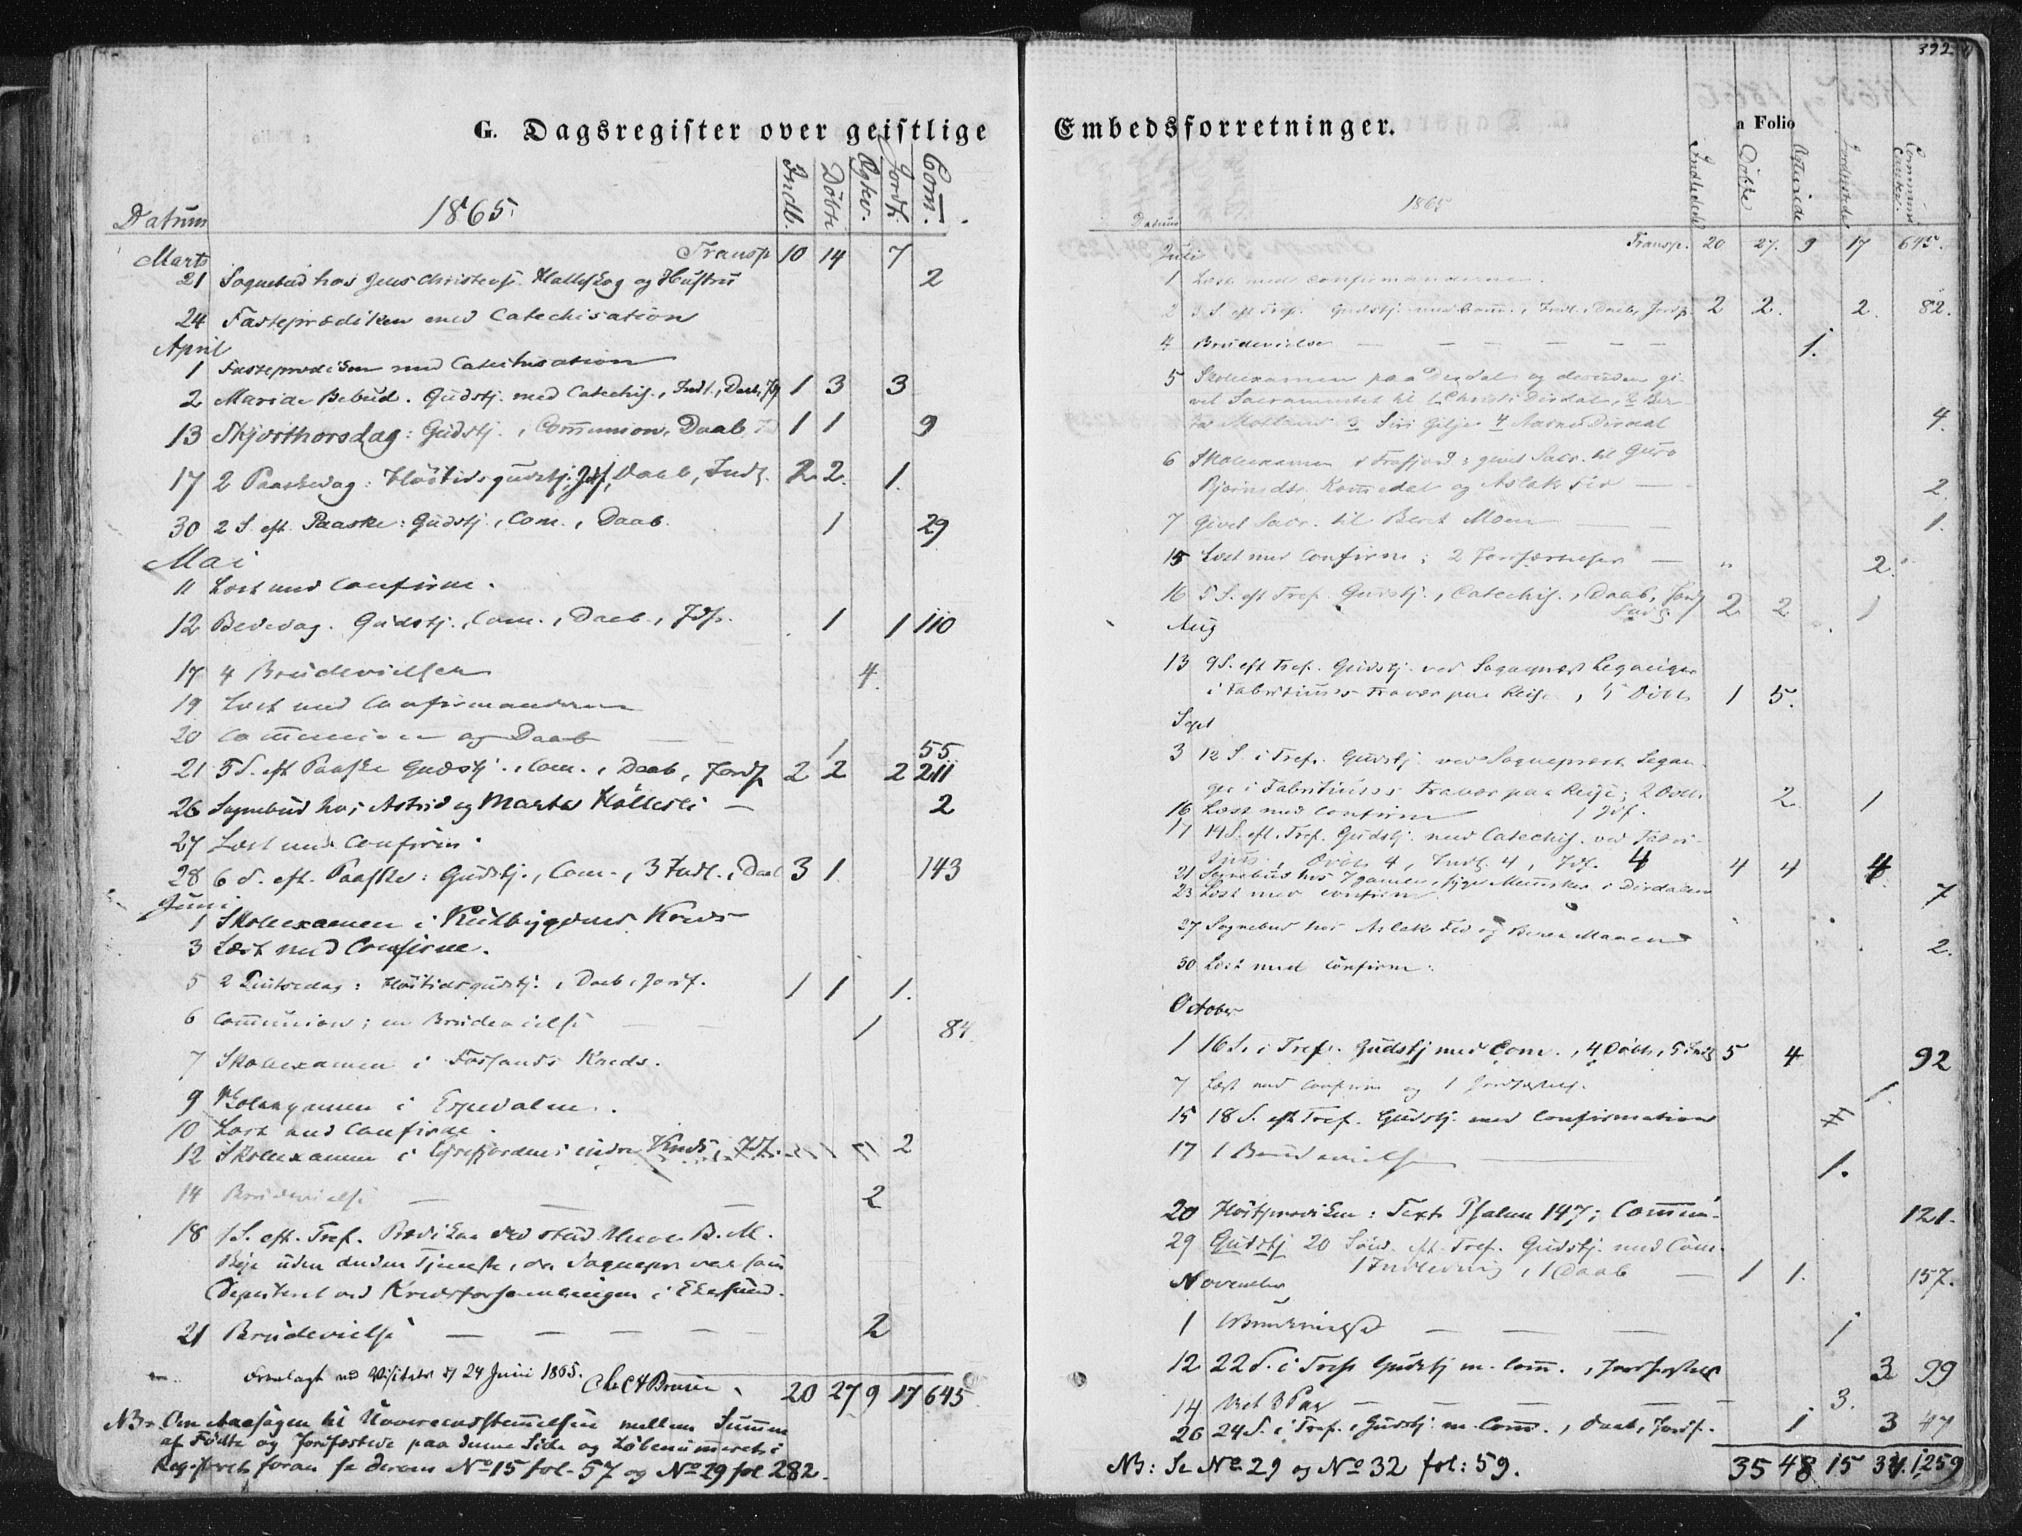 G. Dagsregister over geistlige
Datum 1865. Indb. Döbte Ægtev. Jordf. Com.
Marts Transp 10 14 7
21 Sognebud hos Jens Christens. Halleskog og Hustru 2
24 Fasteprædiken med Catechisation
April
1 Fasteprædiken med Catechisation
2 Mariæ Bebud. Gudstj. med Catechis., Indl., Daab, Jdf 1 3 3
13 Skjærthorsdag: Gudstj., Communion, Daab 1 1 9
17 2 Paaskedag: Höitidsgudstj. Jdf, Daab, Indl. 2 2. 1.
30 2 S. eft. Paaske: Gudstj., Com., Daab. 1 29
Mai
11 Læst med Confirm.
12 Bededag. Gudstj., Com., Daab, Jdf. 1 1 110
17 4 Brudevielser 4.
19 Læst med Confirmanderne
20 Communion og Daab 1 55
21 5 S. eft Paaske Gudstj., Com., Daab, Jordf 2 2 2 211
26 Sognebud hos Astrid og Marta Höllesli — 2
27 Læst med Confirm.
28 6 S. eft. Paaske: Gudstj., Com., 3 Indl., Daab 3 1. 143
Juni
1 Skoleexamen i Kreds
3 Læst med Confirm.
5 2 Pintsedag: Höitidsgudstj., Daab, Jordf. 1 1 1.
6 Communion; en Brudevielse 1 84
7 Skoleexamen i Forsands Kreds.
9 Skoleexamen i Espedalen.
10 Læst med Confirm.
12 Skoleexamen i indre Kreds, Jdf. 2
14 Brudevielse — — — 2
18 1 S. eft. Tref. Prædiken ved stud. B. M.
uden anden Tjeneste, da Sognepr. var som
Deputeret ved Kredsforsamlingen i Ekersund.
21 Brudevielse — — — — 2
Fremlagt ved Visitats d/ 24 Juni 1865. 20 27 9 17 645
NB. Om Aarsagen til Uoverensstemmelsen mellem Summen
af Födte og Jordfæstede paa denne Side og Löbenummeret i
Registeret foran se derom No 15 fol. 57 og No 29 fol 282.
392
Embedsforretninger. a Folio
Datum 1865 Indledede Döbte Ægteviede Jordfæstede Communicanter.
Juli Transp. 20 27. 9 17 645.
1 Læst med Confirmanderne.
2 3 S. eft Tref. Gudstj. med Com., Indl., Daab, Jordf. 2 2. 2. 82.
4 Brudevielse — — — — — 1.
5 Skoleexamen paa Dirdal og desuden gi-
vet Sacramentet til 1 Christi Dirdal, 2 Ber-
3 Siri Gilje 4 Dirdal 4.
6 Skoleexamen i Frafjord; givet Sacr. til Guro
Bjørnsdtr. Kommedal og Aslak Eid — 2.
7 Givet Sacr. til Berit Moen — 1.
15 Læst med Confirm; 2 Jordfæstelser — " 2.
16 5 S. eft Tref. Gudstj., Catechis., Daab, Jordf 2 2 1
Indl
Aug
13 9 S. eft Tref. Gudstj. ved Sogneprest
i Fabritiuses Fravær paa Reise, 5 Döbte 1 5.
Sept
3 12 S. i Tref. Gudstj. ved Sogneprest
i Fabritiuses Fravær paa Reise; 2 Döbte 2. 1
16 Læst med Confirm 1 Jdf.
17 14 S. eft. Tref. Gudstj. med Catechis. ved
Döbte 4, Indl 4, Jdf. 4 4 4 4
21 Sognebud hos 7 gamle, syge Mennesker i Dirdalen
23 Læst med Confirm 7
27 Sognebud hos Aslak Eid og 2.
30 Læst med Confirm.
October
1 16 S. i Tref. Gudstj med Com., 4 Döbte, 5 Indl 5 4 92
7 Læst med Confirm og 1 Jordfæstelse. 1.
15 18 S. eft Tref. Gudstj. med Confirmation
17 1 Brudevielse — 1.
20 Höstprædiken: Text Psalme 147; Commun.
121.
29 Gudstj 20 Sönd. eft. Tref. Gudstj. med Com.
1 Indledning, 1 Daab — 1 1. 157.
November
1 Brudevielse — — — 1
12 22 S. i Tref Gudstj m. Com., Jordfæstelse 3 99
14 Viet 3 Par — — — 3.
26 24 S. i Tref., Gudstj. m. Com., Daab, Jordf. 1 3 47
NB: Se No 29 og No 32 fol: 59. 35 48 15 34. 1259